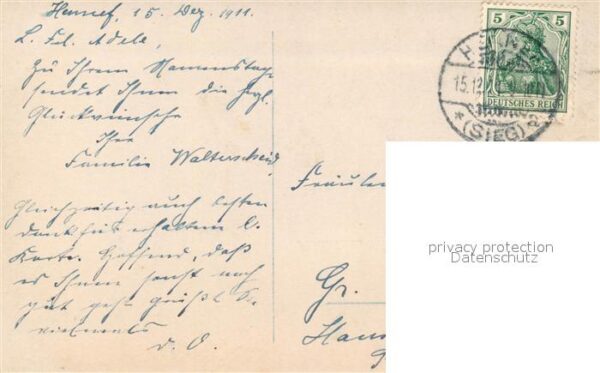 Hennef, 15. Dez. 1911.
L. Frl. Adele,
Zu Ihrem Namenstag
sendet Ihnen die hzgl.
Glückwünsche
Ihre
Familie Walterscheid,
Gleichzeitig auch besten
dank für erhaltene
Karte. Hoffend, daß
es Ihnen sonst noch
gut geht grüßt Sie
vielmals
d. O.
5 5
DEUTSCHES REICH
15.12
*(SIEG)
Fräulein
Gr.
privacy protection
Datenschutz